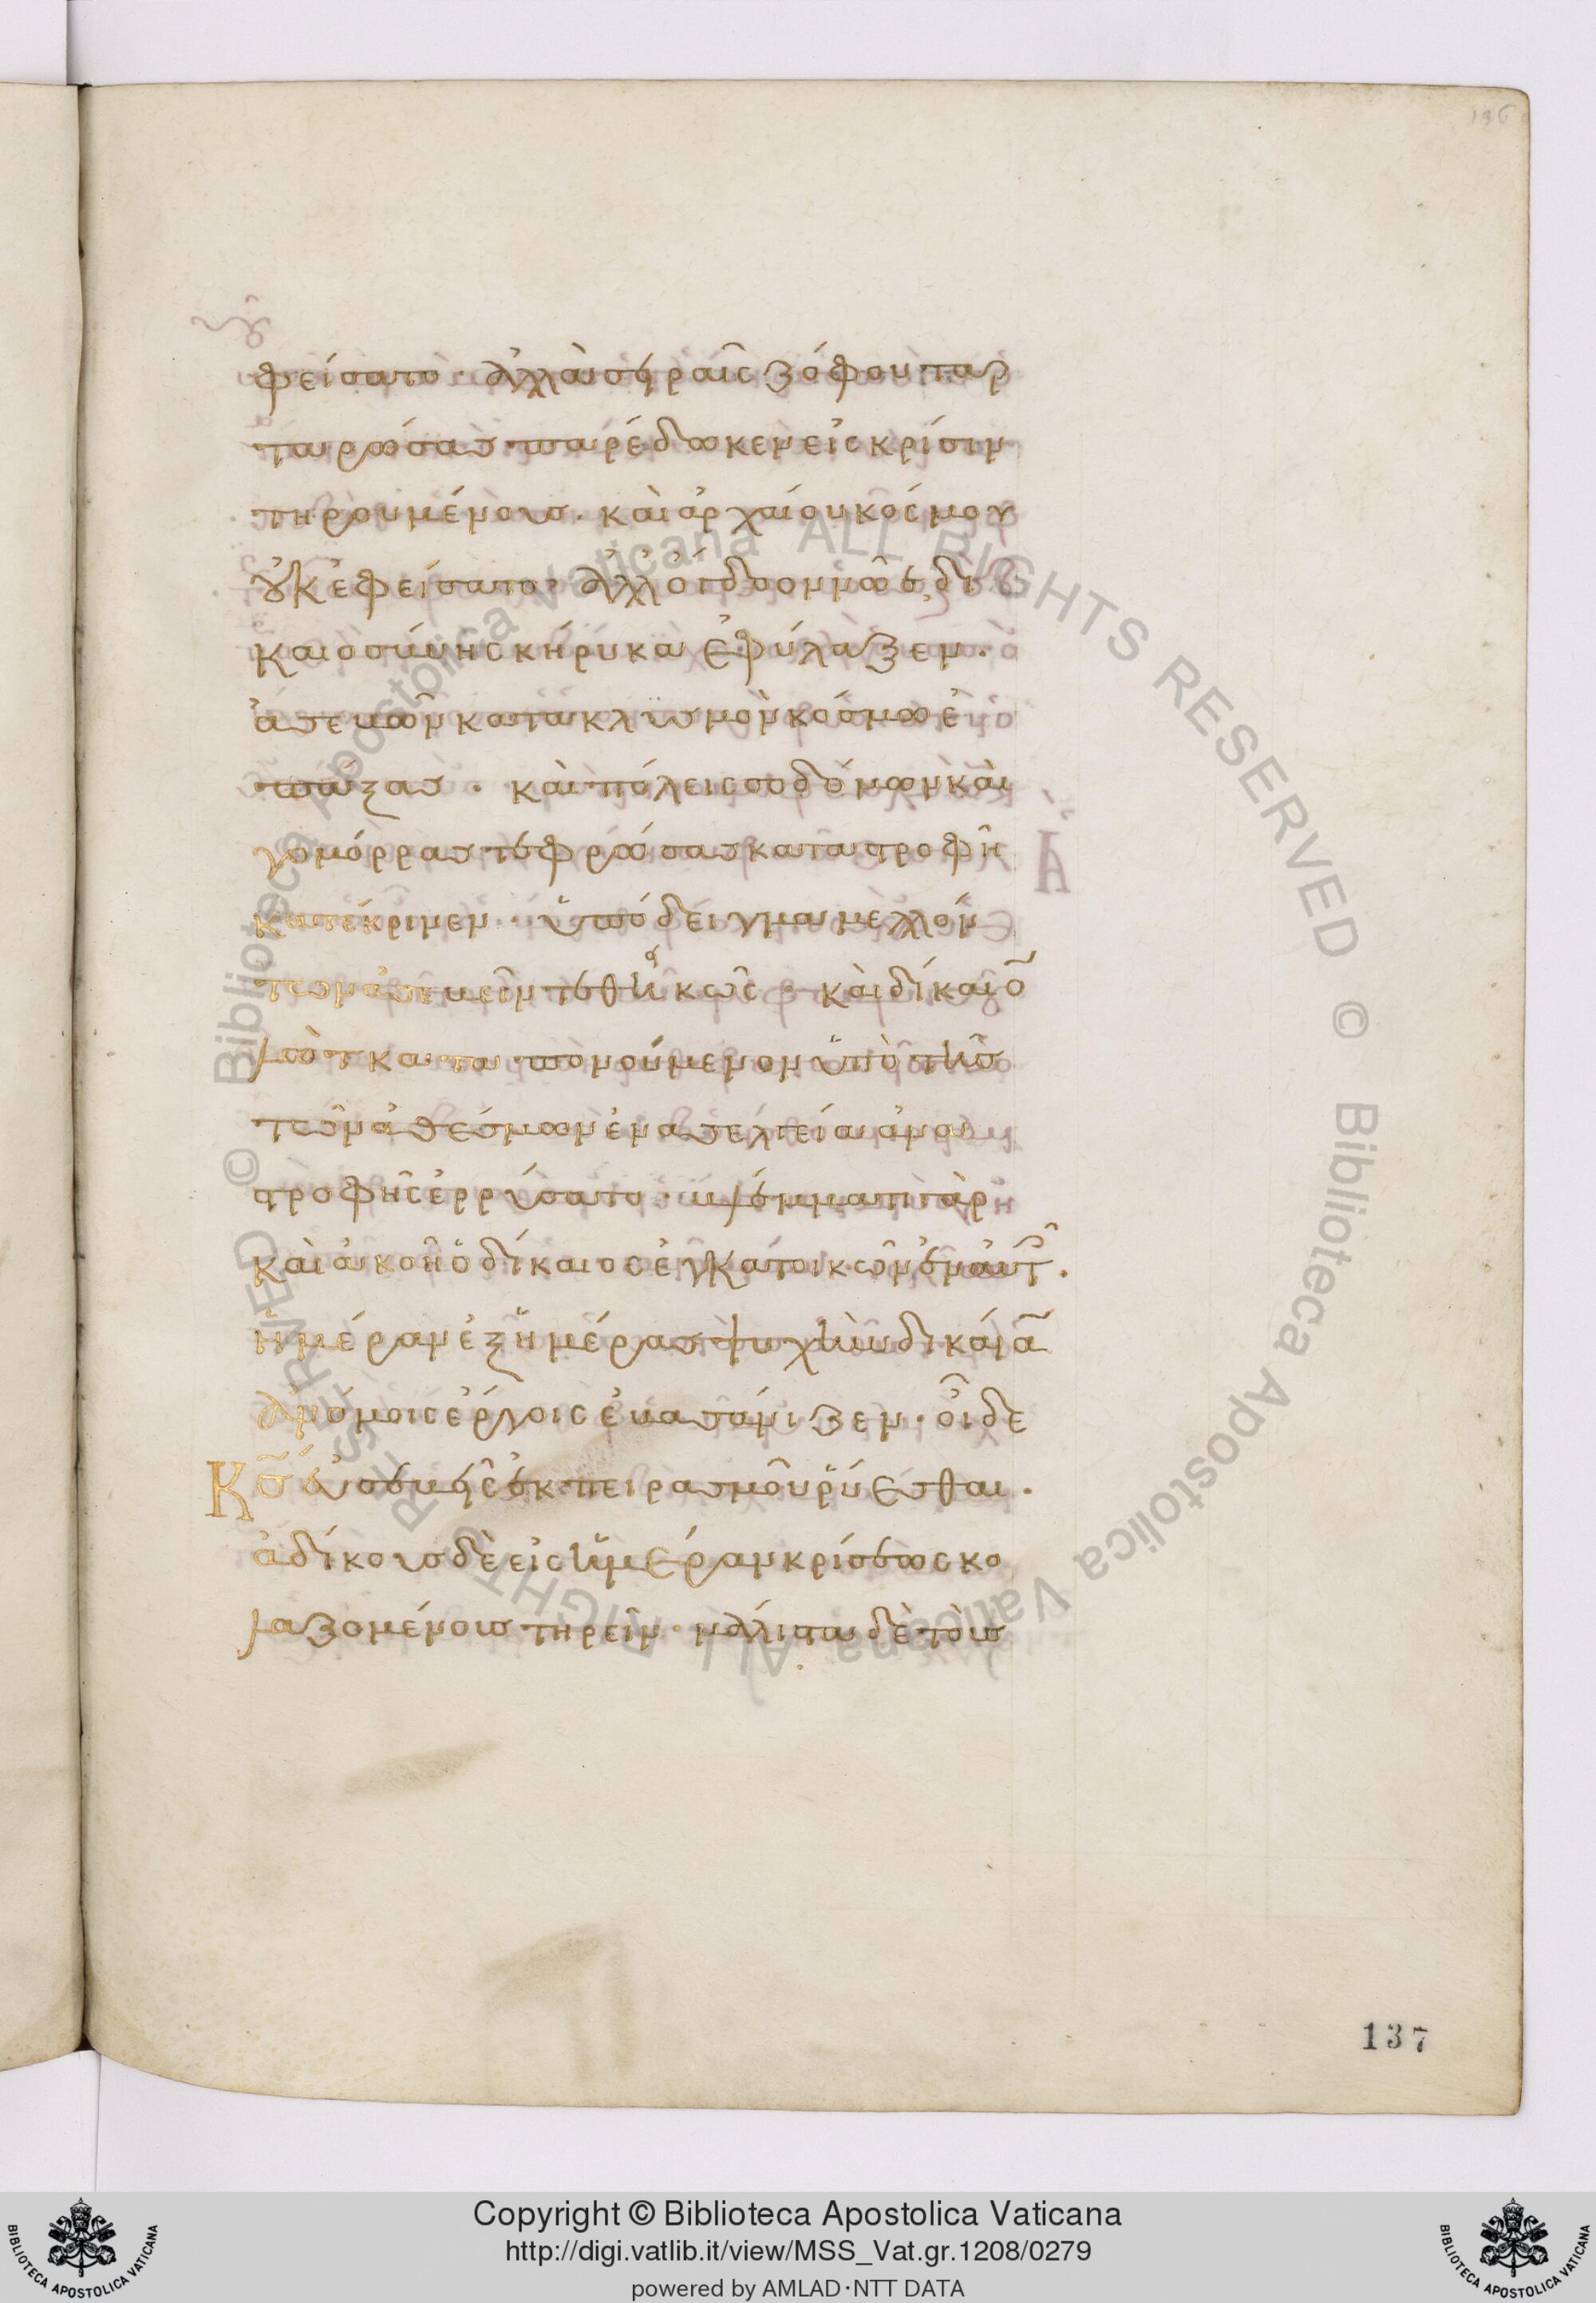 136
φείσατο· ἀλλὰ σειραῖς ζόφου ταρ
ταρώσας παρέδωκεν εἰς κρίσιν
τηρουμένους· καὶ ἀρχαίου κόσμου
οὐκ ἐφείσατο· ἀλλ' ὄγδοον νῶε δι
καιοσύνης κήρυκα ἐφύλαξεν·
ἀσεβῶν κατακλυσμὸν κόσμω ἐ
πάξας· καὶ πόλεις σοδόμων καὶ
γομόρρας τεφρώσας καταστροφῆ
κατέκρινεν· ὑπόδειγμα μελλόν
των ἀσεβεῖν τεθηκὼς· καὶ δίκαιο̄
λὼτ καταπονούμενον ὑπὸ τῆς
τῶν ἀθέσμων ἐν ἀσελγεία ἀνα
στροφῆς ἐρρύσατο· βλέμματι γὰρ
καὶ ἀκοῆ ὁ δίκαιος ἐγκατοικῶν ἐν αὐτ̂·
ἡμέραν ἐξ ἡμέρας ψυχὴν δικαίᾱ
ἀνόμοις ἔργοις ἐβασάνιζεν· οἶδε
Κ̄ς̄ εὐσεβεῖς ἐκ πειρασμοῦ ῥύεσθαι·
ἀδίκους δὲ εἰς ἡμέραν κρίσεως κο
λαζομένους τηρεῖν· μάλιστα δὲ τοὺς
137
Copyright © Biblioteca Apostolica Vaticana
http://digi.vatlib.it/view/MSS_Vat.gr.1208/0279
powered by AMLAD·NTT DATA
BIBLIOTECA APOSTOLICA VATICANA
BIBLIOTECA APOSTOLICA VATICANA
© Biblioteca Apostolica Vaticana ALL RIGHTS RESERVED © Biblioteca Apostolica Vaticana ALL RIGHTS RESERVED